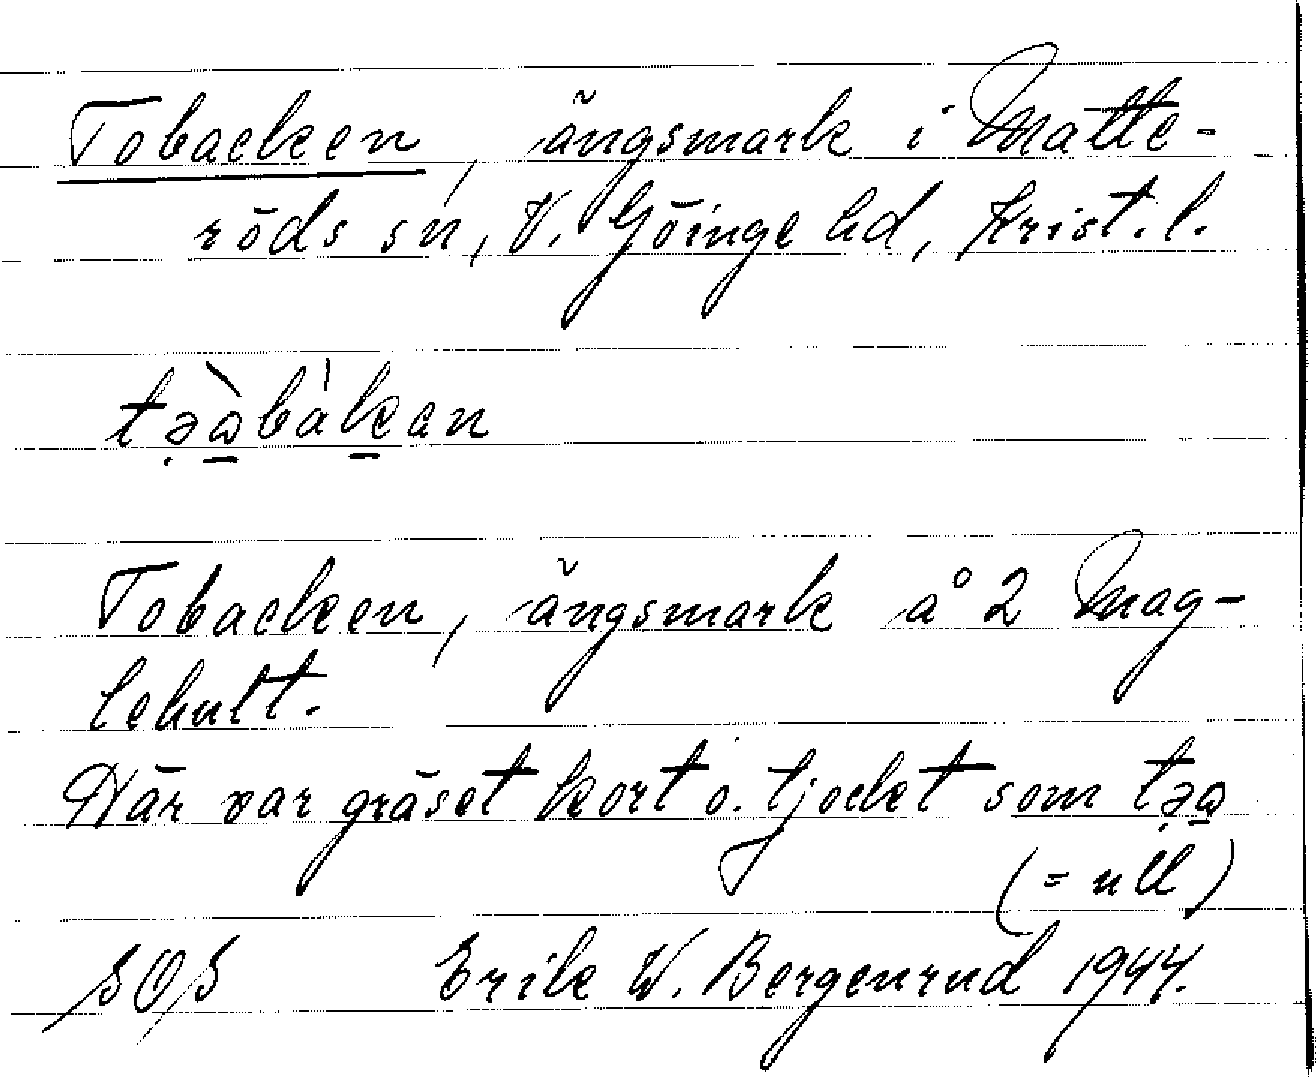 Tobacken, ängsmark i Matte-
röds sn, V. Göinge hd, Krist. l.
tə̣ὼ̱bàḵan
Tobacken, ängsmark å 2 Mag-
lehult.
Här var gräset kort o. tjockt som tə̣ω̱
(= ull)
SOS Erik W. Bergenrud 1944.